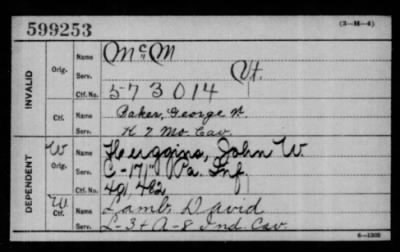 599253
(3-M-4)
INVALID
Orig.
Name McM
Serv. Vt.
Ctf. No. 573014
Ctf.
Name Baker, George W.
Serv. K 7 Mo. Cav.
DEPENDENT
W
Orig.
Name Huggins, John W.
Serv. C-17 Pa. Inf.
Ctf. No. 491,462
W
Ctf.
Name Lamb, David
Serv. L-3 + A-8 Ind. Cav.
6-1308